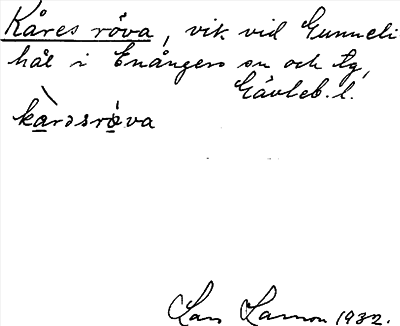 Kåres röva, vik vid Gunneli
hål i Enångers sn och tg,
Gävleb. l.
kàrəsrǿva
Lars Larson 1932.